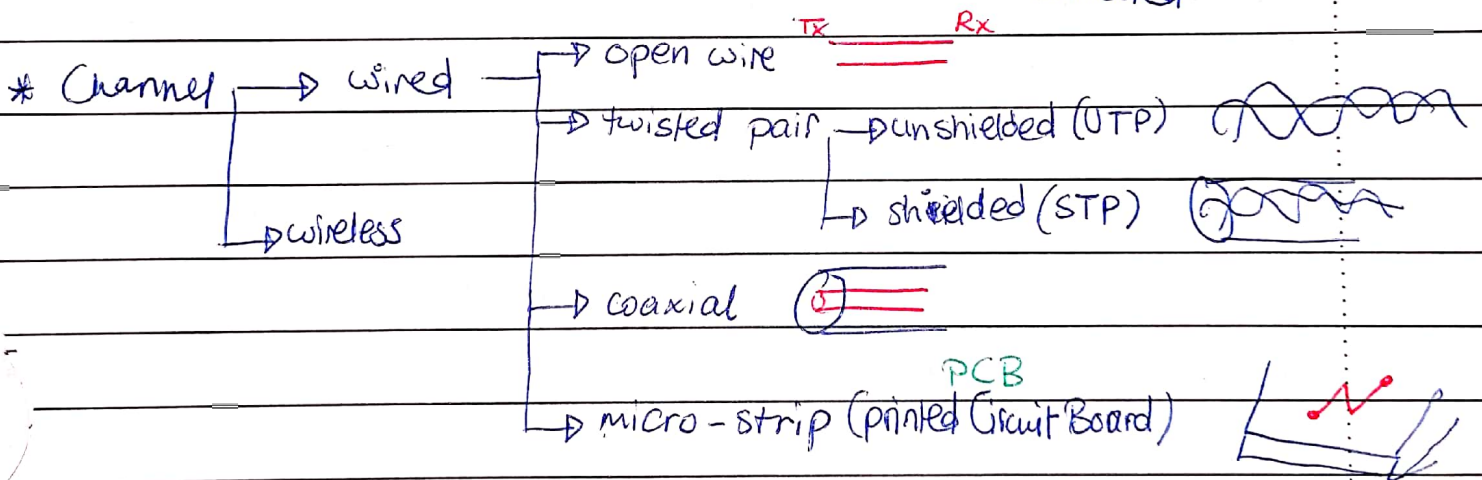 Tx Rx
* Channel → wired → open wire
→ twisted pair → unshielded (UTP)
→ shielded (STP)
→ wireless
→ coaxial
PCB
→ micro-strip (printed Circuit Board)